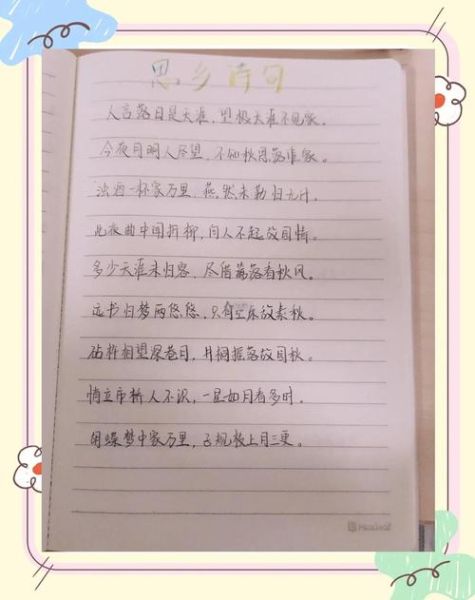 思乡诗句
人言落日是天涯，望极天涯不见家。
今夜月明人尽望，不知秋思落谁家。
浊酒一杯家万里，燕然未勒归无计。
此夜曲中闻折柳，何人不起故园情。
多少天涯未归客，尽借篱落看秋风。
远书归梦两悠悠，只有空床敌素秋。
砧杵相望深巷月，井桐摇落故园秋。
悄立市桥人不识，一星如月看多时。
胡蝶梦中家万里，子规枝上月三更。